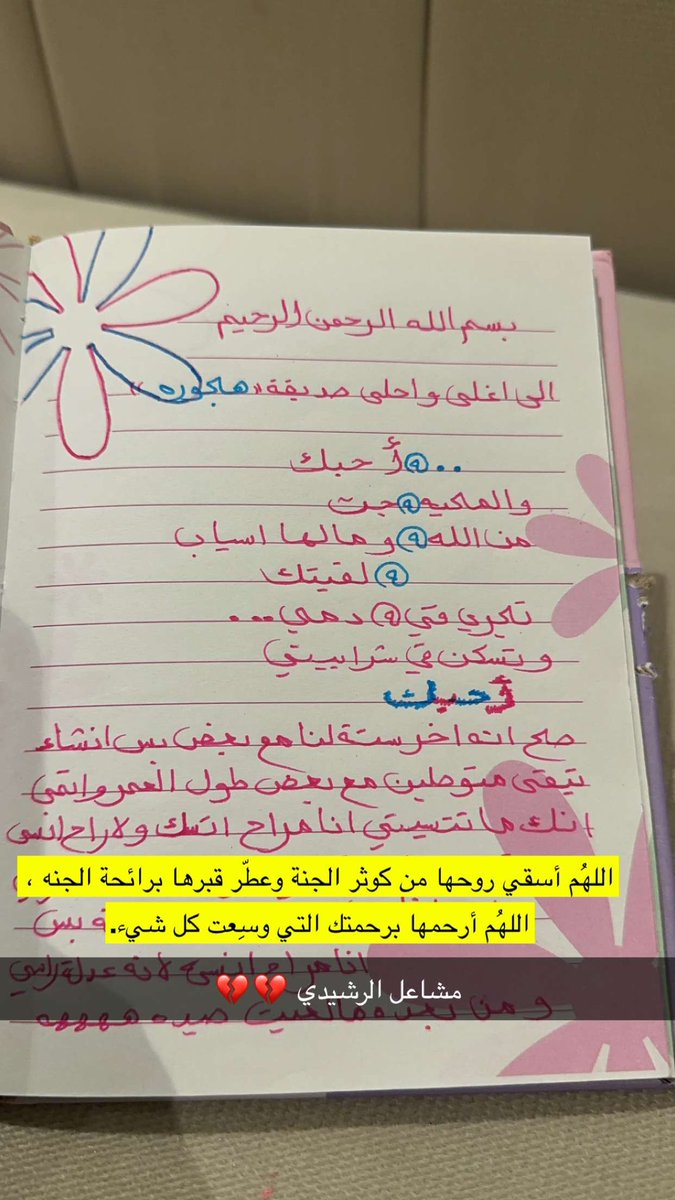 بسم الله الرحمن الرحيم
الى اغلى واحلى صديقة «هاجوره»
.. أحبك
والمحبه جت
من الله ومالها اسباب
لقيتك
تجري في دمي...
وتسكن في شراييني
أحبك
صح انه اخر سنة لنا مع بعض بس انشاء
نبقى متوصلين مع بعض طول العمر واتمنى
انك ما تنسيني انا مراح انسك ولا راح انسى
اللهُم أسقي روحها من كوثر الجنة وعطّر قبرها برائحة الجنه ،
ه بس
اللهُم أرحمها برحمتك التي وسِعت كل شيء.
انا مراح انسى لانه
مشاعل الرشيدي 💔💔
و من ههههه